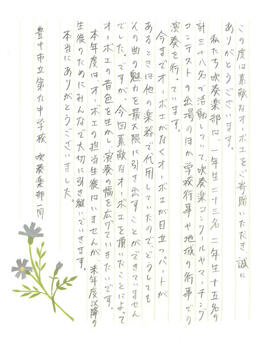 この度は素敵なオーボエをご寄贈いただき、誠に
ありがとうございます。
私たち吹奏楽部は、一年生二十三名、二年生十五名の
計三十八名で活動していて、吹奏楽コンクールやマーチング
コンテストの出場のほか、学校行事や地域の行事での
演奏を行っています。
今までオーボエがなくオーボエが目立つパートが
あるときは他の楽器で代用していたので、どうしても
その曲の魅力を最大限に引き出すことができていません
でした。ですが、今回素敵なオーボエを頂いたことによって
オーボエの音色を生かし演奏の幅を広げていきたいです。
本年度はオーボエの担当生徒はいませんが、来年度以降の
生徒のためにみんなで大切に引き継いでいきます。
本当にありがとうございました。
豊中市立第九中学校 吹奏楽部一同